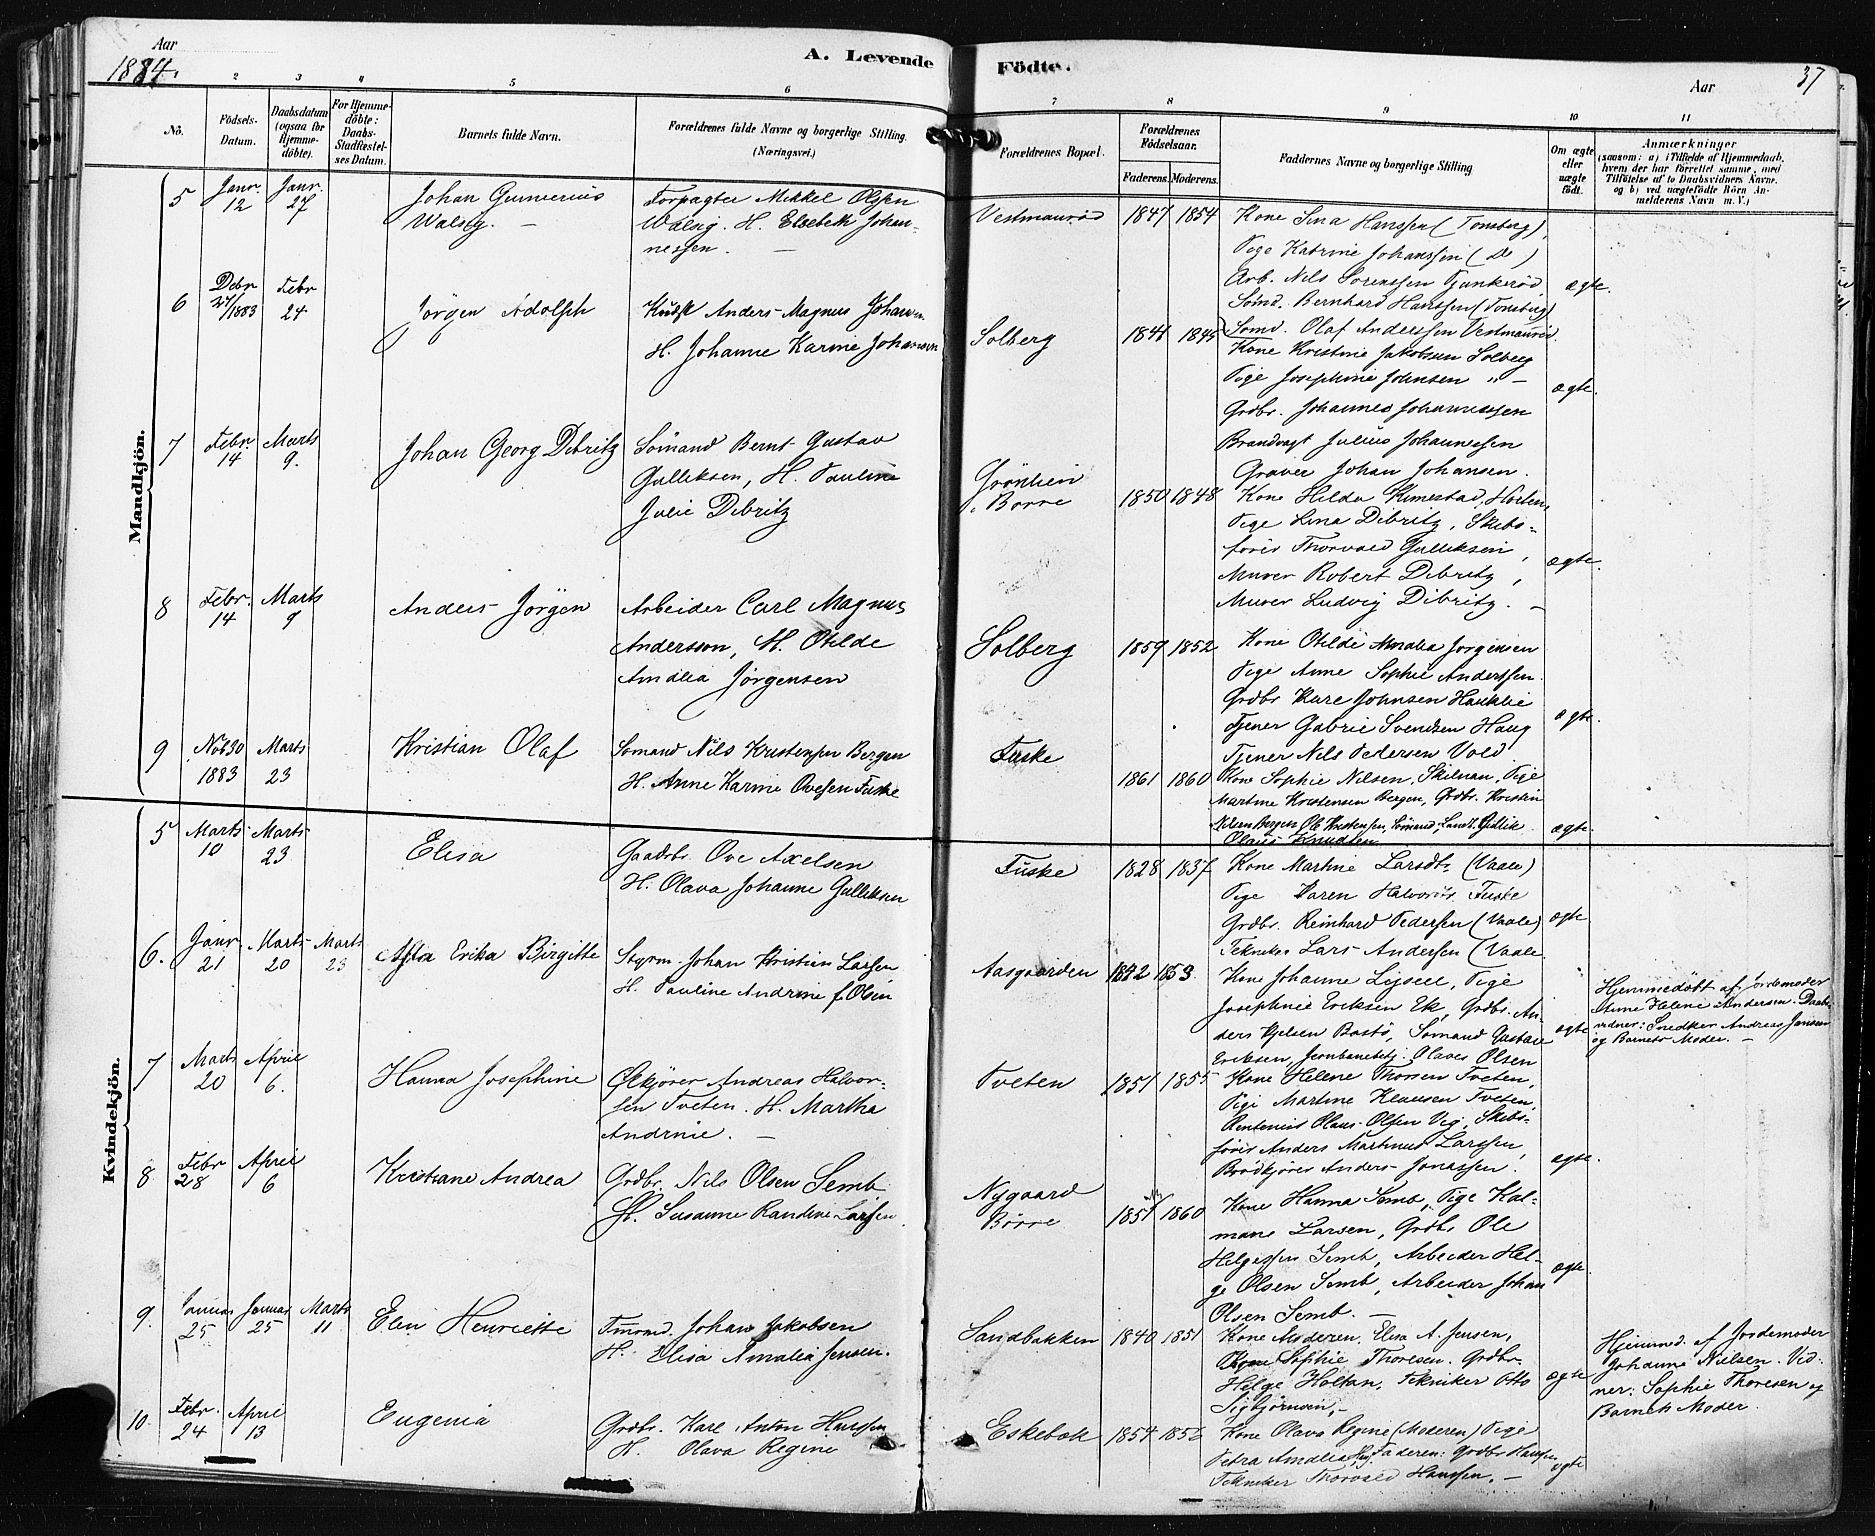 Aar
1884.
A. Levende Födte.
Aar
37
2 3 4 5 6 7 8 9 10 11
No.
Födsels-Datum.
Daabsdatum (ogsaa for Hjemmedöbte).
For Hjemmedöbte: Daabs-Stadfestelses Datum.
Barnets fulde Navn.
Forældrenes fulde Navne og borgerlige Stilling.
(Næringsvei.)
Forældrenes Bopæl.
Forældrenes Födselsaar.
Faderens. Moderens.
Faddernes Navne og borgerlige Stilling
Om ægte eller uægte födt.
Anmærkninger
(saasom: a) i Tilfælde af Hjemmedaab, hvem der har forrettet samme, med Tilföielse af to Daabsvidners Navne, og b) ved uægtefödte Börn Anmelderens Navn m. V.)
Mandkjön.
5 Janr. 12 Janr. 27
Johan Gunnerius
Walseg. —
Forpagter Mikkel Olsen
Walsig. H. Elsebeth Johan-
nessen. —
Vestmauröd 1847 1854
Kone Sina Hanssen (Tonsberg),
Pige Katrine Johanssen (Do)
Arb. Nils Sorenssen Tjunkeröd
Sömd. Bernhard Hanssen (Tonsberg)
Sömd. Olaf Anderssen Vestmauröd.
ægte.
6 Debr 27/1883 Febr 24
Jörgen Adolph
Kudsk Anders Magnus Johansen
H. Johanne Karine Johansen
Solberg 1841 1845
Kone Kristine Jakobsen Solberg
Pige Josephine Johnsen " —
Grdbr. Johannes Johannessen
Brandvagt Julius Johannessen
Graver Johan Johansen.
ægte.
7 Febr. 14 Marts 9.
Johan Georg Dibritz
Sömand Bernt Gustav
Gulliksen, H. Pauline
Julie Dibritz
Grönlien
Borre 1850 1848
Kone Hilda Kimestad, Horten,
Pige Lina Dibritz, Skibs-
förer Thorvald Gulliksen,
Murer Robert Dibritz,
Murer Ludvig Dibritz. —
ægte.
8 Febr. 14 Marts 9
Anders Jörgen
Arbeider Carl Magnus
Andersson, H. Otilde
Amalia Jörgensen
Solberg 1859 1852
Kone Otilde Amalia Jorgensen
Pige Anne Sophie Anderssen.
Grdbr Kare Johnsen Hauklie
Tjener Gabrie Svendsen Haug
Tjener Nils Pedersen Vold
ægte.
9 Nov 30 1883 Marts 23
Kristian Olaf
Sömand Nils Kristensen Bergen
H. Anne Karine Ovesen Fuske
Fuske
1861 1860
Kone Sophie Nilsen, Skilnan, Pige
Martine Kristensen Bergen, Grdbr. Kristin
Nilsen Bergen, Ole Kristensen, Sömand,
Olaus Knudsen
ægte.
Kvindekjön.
5 Marts 10 Marts 23
Elisa
Gaardbr. Ove Axelsen
H. Olava Johanne Gulliksen
Fuske 1828 1837
Kone Martine Larsdtr (Vaale)
Pige Karen Halvors. Fuske
Grdbr. Reinhard Pedersen (Vaale)
Tekniker Lars Andersen (Vaale
ægte
6. Janr. 21 Marts 20 Marts 23
Asta Erika Birgitte
Styrm. Johan Kristian Larsen
H. Pauline Andrine f. Olsen
Aasgaarden 1842 1853.
Kone Johanne Lysell, Pige
Josephine Eriksen Ek, Grdbr. An-
ders Kjelsen Bastö, Sömand Gustav
Eriksen, Jernbanebetj. Olaves Olsen
ægte
Hjemmedöbt af Jordemoder
Anne Helene Andersen. Daabs-
vidner: Snedker Andreas Jansen
og Barnets Moder. —
7 Marts 20 April 6.
Hanna Josephine
Ölkjörer Andreas Halvor-
sen Tveten. H. Martha
Andrine. —
Tveten 1851 1855
Kone Helene Thorsen Tveten,
Pige Martine Klausen Tveten,
Rentenist Olaus Olsen Vig, Skibs-
förer Anders Martinus Larssen,
Brödkjörer Anders Jonassen.
ægte.
8 Febr 28 April 6
Kristiane Andrea
Grdbr. Nils Olsen Semb
H. Susanne Randine Larsen.
Nygaard
Borre 1851 1860
Kone Hanna Semb, Pige Kal-
mane Larsen, Grdbr Ole
Helgessen Semb, Arbeider Hel-
ge Olsen Semb, Arbeider Johan
Olsen Semb. —
ægte.
9. Januar 25 Januar 25 Marts 11
Elin Henriette
Tmrmd. Johan Jakobsen
H. Elisa Amalia Jensen.
Sandbakken 1840 1851
Kone Moderen, Elisa A. Jensen,
Kone Sophie Thoresen. Grdbr.
Helge Holtan, Tekniker Otto
Sigbjörnsen, —
ægte
Hjemmed. af Jordemoder
Johanne Nielsen. Vid-
ner: Sophie Thoresen og
Barnets Moder.
10. Febr. 24 April 13
Eugenia
Grdbr. Karl Anton Hanssen
H. Olava Regine
Eskebæk 1854 1856
Kone Olava Regine (Moderen) Pige
Petra Amalia Faderen: Grdbr Hanssen
Tekniker Thorvald Hanssen. —
ægte